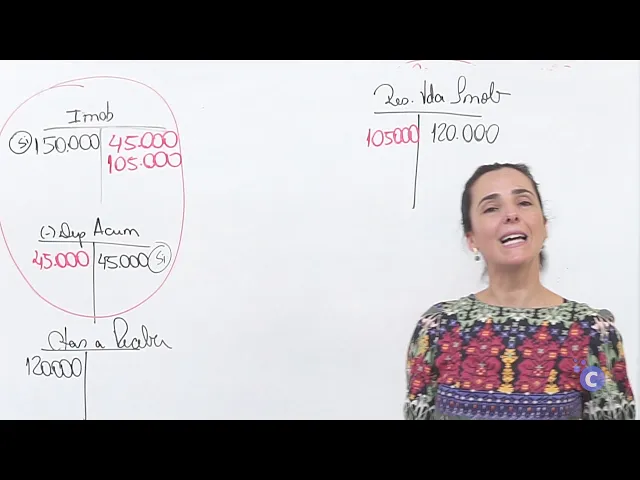 Imob
Si 150.000 45.000
105.000
(-) Dep Acum
45.000 45.000 Si
Ctas a Receber
120.000
Res. Vda Imob
105000 120.000
C